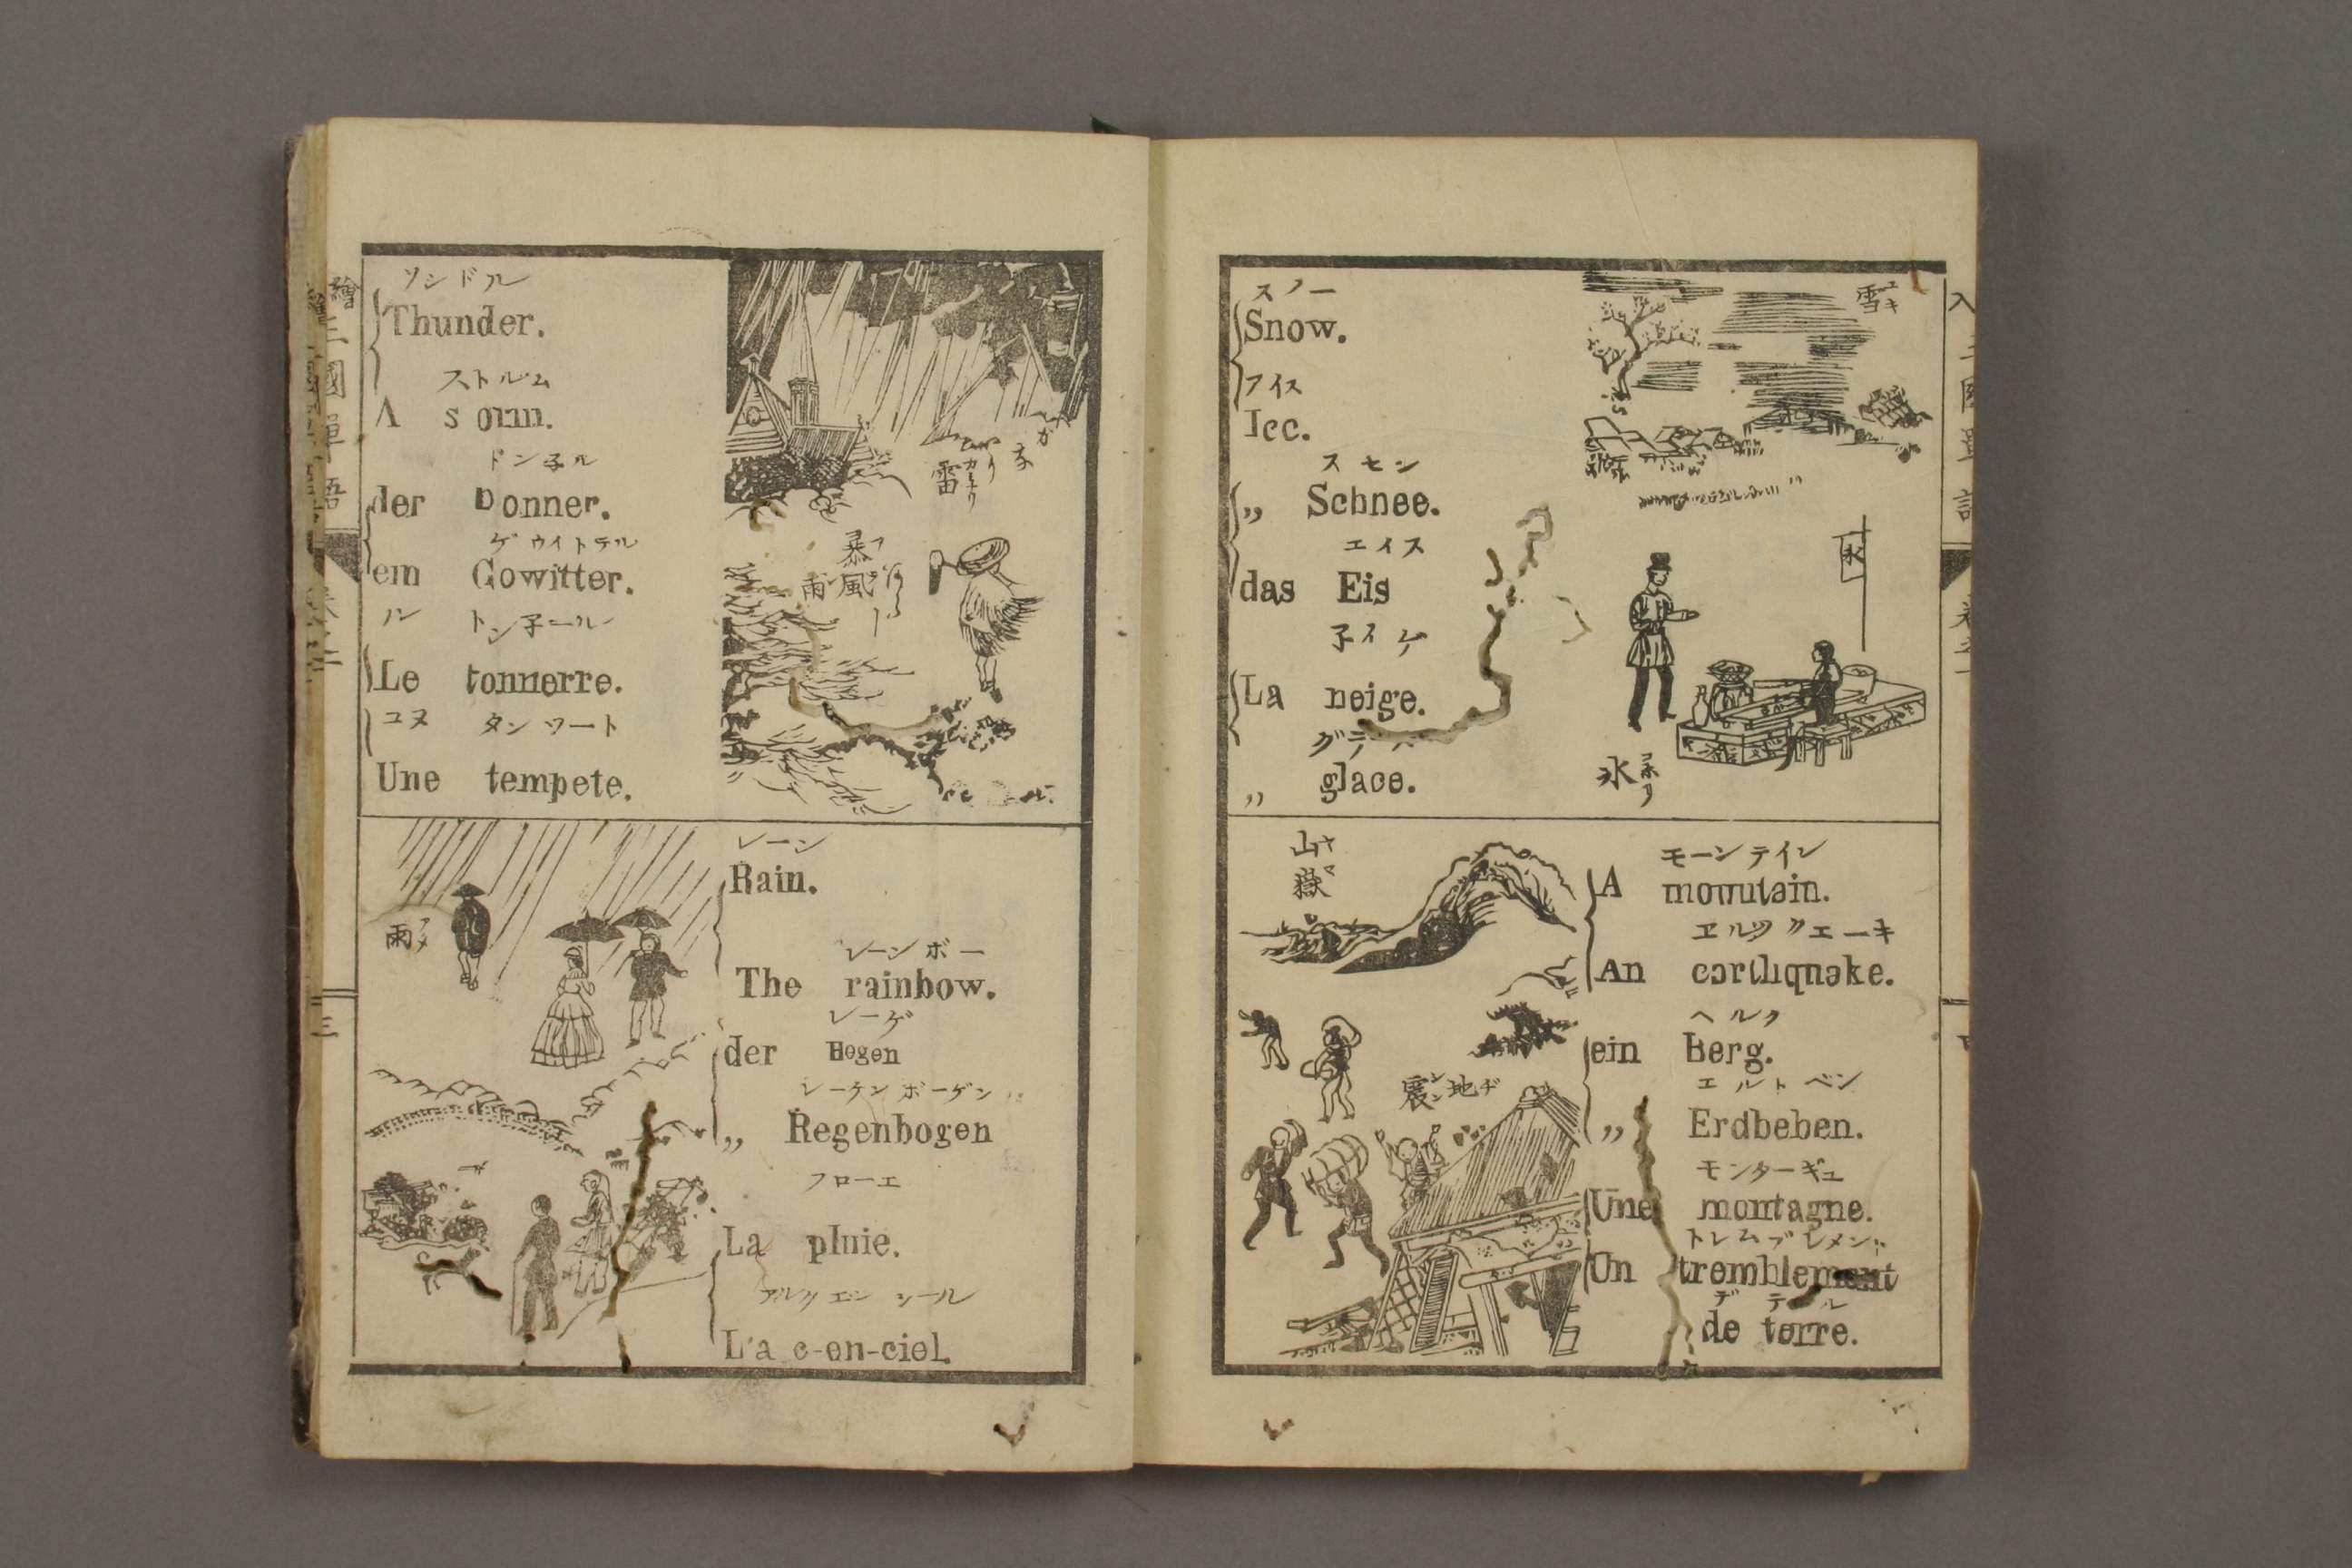 ソンドル
Thunder.
ストルム
A s orm.
ドン子ル
der Donner.
ゲウイトテル
em Gowitter.
トン子ール
Le tonnerre.
コヌ タンワート
Une tempete.
雷
カミナリ
暴風
雨
レーン
Rain.
レーンボー
The rainbow.
レーゲ
der Hogen
レーケンボーゲン
„ Regenbogen
フローエ
La pluie.
アルクエンシール
L'a c-en-ciel.
雨
アメ
三
スノー
Snow.
アイス
Ice.
スセン
„ Schnee.
エイス
das Eis
子イゲ
La neige.
„ glace.
雪
ユキ
氷
氷
コホリ
山嶽
ヤマ
モーンテイン
A mountain.
ヱルツクエーキ
An earthquake.
ヘルク
ein Berg.
エルトベン
„ Erdbeben.
モンターギュ
Une montagne.
トレムブレメン
Un tremblement
de terre.
地震
ヂシン